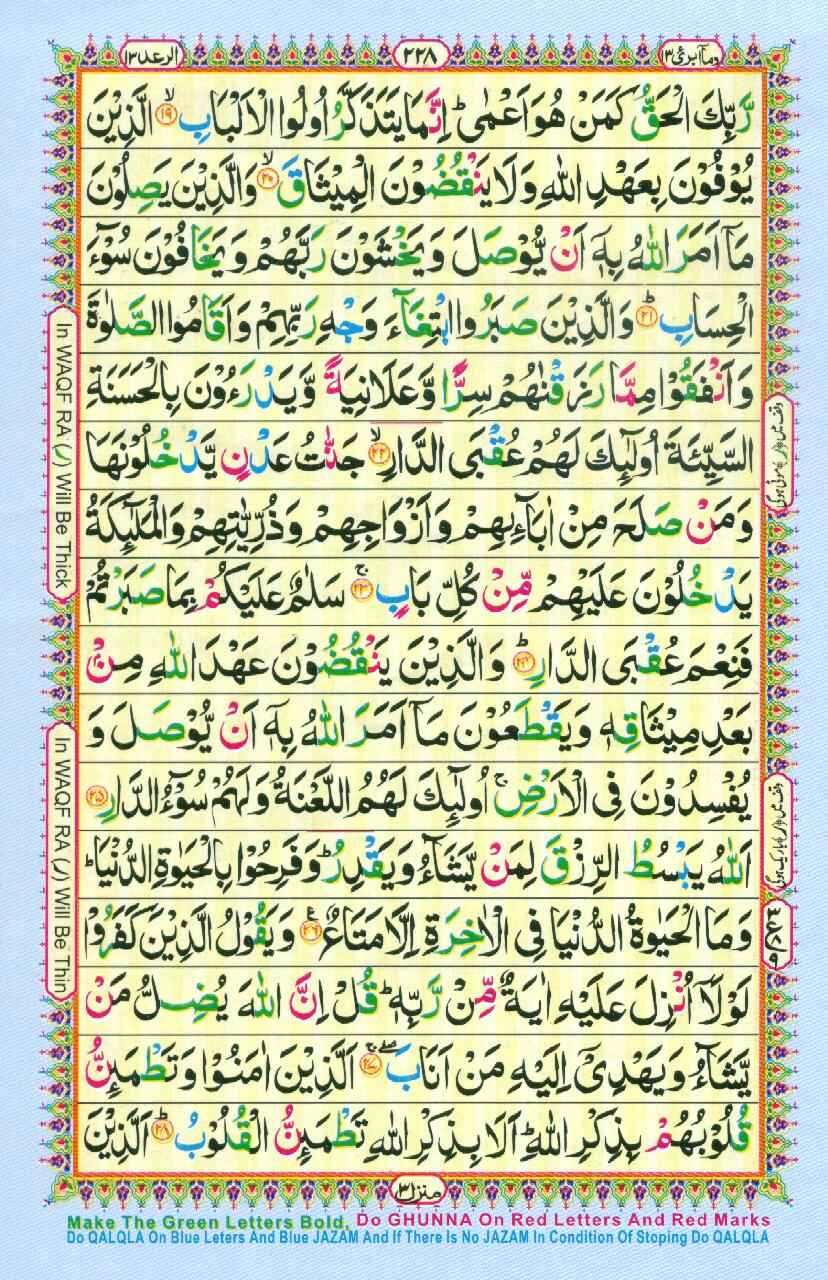 وما ابرئ ١٣
٢٢٨
الرعد ١٣
رَّبِّكَ الْحَقُّ كَمَنْ هُوَ اَعْمٰىؕ اِنَّمَا يَتَذَكَّرُ اُولُوا الْاَلْبَابِۙ ۱۹ الَّذِيْنَ
يُوْفُوْنَ بِعَهْدِ اللّٰهِ وَلَا يَنْقُضُوْنَ الْمِيْثَاقَۙ ۲۰ وَالَّذِيْنَ يَصِلُوْنَ
مَاۤ اَمَرَ اللّٰهُ بِهٖۤ اَنْ يُّوْصَلَ وَيَخْشَوْنَ رَبَّهُمْ وَيَخَافُوْنَ سُوْٓءَ
الْحِسَابِؕ ۲۱ وَالَّذِيْنَ صَبَرُوا ابْتِغَآءَ وَجْهِ رَبِّهِمْ وَاَقَامُوا الصَّلٰوةَ
وَاَنْفَقُوْا مِمَّا رَزَقْنٰهُمْ سِرًّا وَّعَلَانِيَةً وَّيَدْرَءُوْنَ بِالْحَسَنَةِ
السَّيِّئَةَ اُولٰٓئِكَ لَهُمْ عُقْبَى الدَّارِۙ ۲۲ جَنّٰتُ عَدْنٍ يَّدْخُلُوْنَهَا
وَمَنْ صَلَحَ مِنْ اٰبَآئِهِمْ وَاَزْوَاجِهِمْ وَذُرِّيّٰتِهِمْ وَالْمَلٰٓئِكَةُ
يَدْخُلُوْنَ عَلَيْهِمْ مِّنْ كُلِّ بَابٍۚ ۲۳ سَلٰمٌ عَلَيْكُمْ بِمَا صَبَرْتُمْ
فَنِعْمَ عُقْبَى الدَّارِؕ ۲۴ وَالَّذِيْنَ يَنْقُضُوْنَ عَهْدَ اللّٰهِ مِنْۢ
بَعْدِ مِيْثَاقِهٖ وَيَقْطَعُوْنَ مَاۤ اَمَرَ اللّٰهُ بِهٖۤ اَنْ يُّوْصَلَ وَ
يُفْسِدُوْنَ فِى الْاَرْضِۙ اُولٰٓئِكَ لَهُمُ اللَّعْنَةُ وَلَهُمْ سُوْٓءُ الدَّارِ ۲۵
اَللّٰهُ يَبْسُطُ الرِّزْقَ لِمَنْ يَّشَآءُ وَيَقْدِرُؕ وَفَرِحُوْا بِالْحَيٰوةِ الدُّنْيَاؕ
وَمَا الْحَيٰوةُ الدُّنْيَا فِى الْاٰخِرَةِ اِلَّا مَتَاعٌ ۲۶ع وَيَقُوْلُ الَّذِيْنَ كَفَرُوْا
لَوْلَاۤ اُنْزِلَ عَلَيْهِ اٰيَةٌ مِّنْ رَّبِّهٖؕ قُلْ اِنَّ اللّٰهَ يُضِلُّ مَنْ
يَّشَآءُ وَيَهْدِىْۤ اِلَيْهِ مَنْ اَنَابَۖۚ ۲۷ اَلَّذِيْنَ اٰمَنُوْا وَتَطْمَئِنُّ
قُلُوْبُهُمْ بِذِكْرِ اللّٰهِؕ اَلَا بِذِكْرِ اللّٰهِ تَطْمَئِنُّ الْقُلُوْبُؕ ۲۸ اَلَّذِيْنَ
منزل ٣
In WAQF RA (ر) Will Be Thick
In WAQF RA (ر) Will Be Thin
وقف میں (ر) موٹی ہوگی
وقف میں (ر) باریک ہوگی
Make The Green Letters Bold, Do GHUNNA On Red Letters And Red Marks
Do QALQLA On Blue Leters And Blue JAZAM And If There Is No JAZAM In Condition Of Stoping Do QALQLA